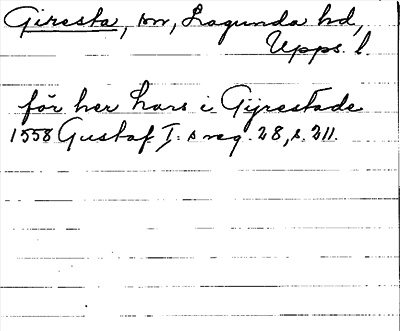 Giresta, sn, Lagunda hd,
Upps. l.
för her Lars i Gijrestade
1558 Gustaf I:s reg. 28, s. 211.